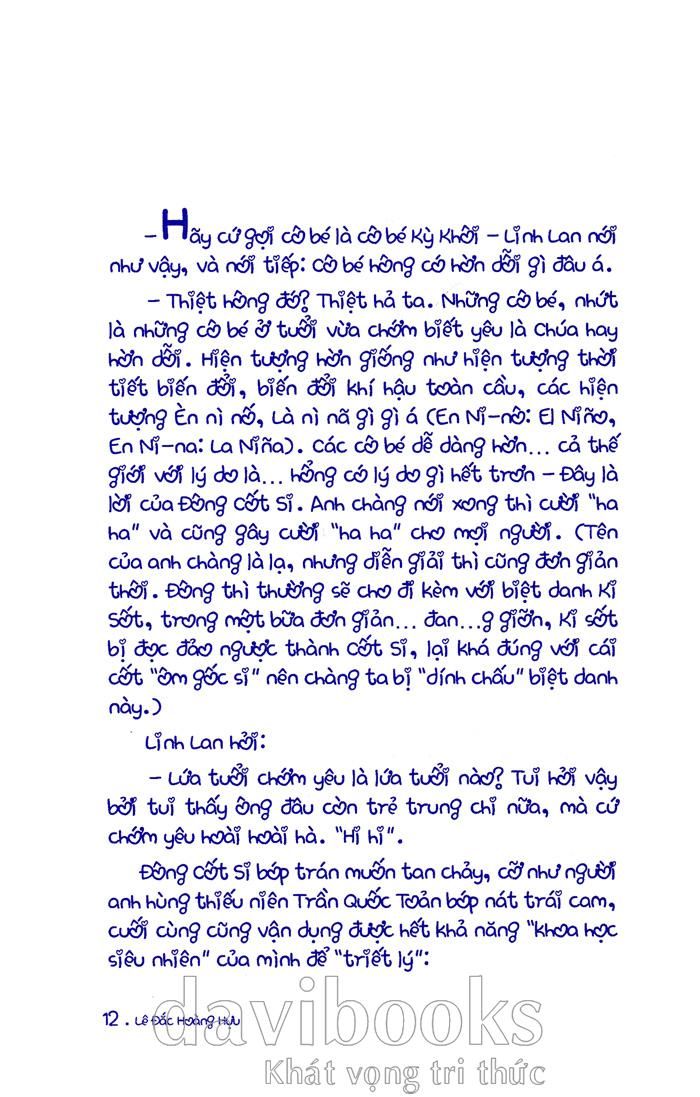 – Hãy cứ gọi cô bé là cô bé Kỳ Khôi – Linh Lan nói
như vậy, và nói tiếp: Cô bé hông có hờn dỗi gì đâu á.
– Thiệt hông đó? Thiệt hả ta. Những cô bé, nhứt
là những cô bé ở tuổi vừa chớm biết yêu là Chúa hay
hờn dỗi. Hiện tượng hờn giống như hiện tượng thời
tiết biến đổi, biến đổi khí hậu toàn cầu, các hiện
tượng Èn nì nố, Là nì nã gì gì á (En Ni-nô: El Niño,
En Ni-na: La Niña). Các cô bé dễ dàng hờn... cả thế
giới với lý do là... hổng có lý do gì hết trơn – Đây là
lời của Đông Cốt Si. Anh chàng nói xong thì cười "ha
ha" và cũng gây cười "ha ha" cho mọi người. (Tên
của anh chàng là lạ, nhưng diễn giải thì cũng đơn giản
thôi. Đông thì thường sẽ cho đi kèm với biệt danh Ki
Sốt, trong một bữa đơn giản... đan...g giỡn, Ki Sốt
bị đọc đảo ngược thành Cốt Si, lại khá đúng với cái
cốt "ôm gốc si" nên chàng ta bị "dính chấu" biệt danh
này.)
Linh Lan hỏi:
– Lứa tuổi chớm yêu là lứa tuổi nào? Tui hỏi vậy
bởi tui thấy ông đâu còn trẻ trung chi nữa, mà cứ
chớm yêu hoài hoài hà. "Hi hi".
Đông Cốt Si bóp trán muốn tan chảy, cỡ như người
anh hùng thiếu niên Trần Quốc Toản bóp nát trái cam,
cuối cùng cũng vận dụng được hết khả năng "khoa học
siêu nhiên" của mình để "triết lý":
12 . Lê Đắc Hoàng Hựu
davibooks
Khát vọng tri thức